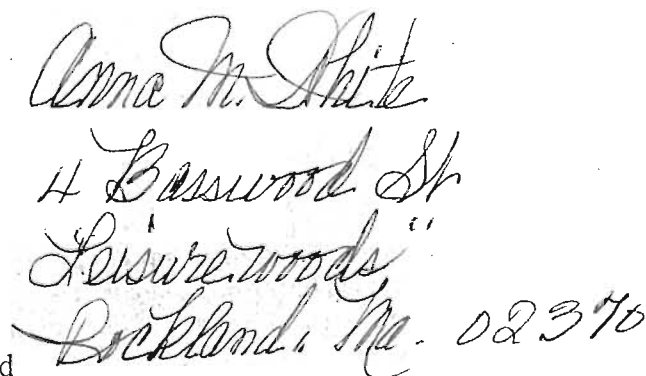 Anna M. White
4 Basswood St
"Leisurewoods"
Rockland, Ma. 02370
d